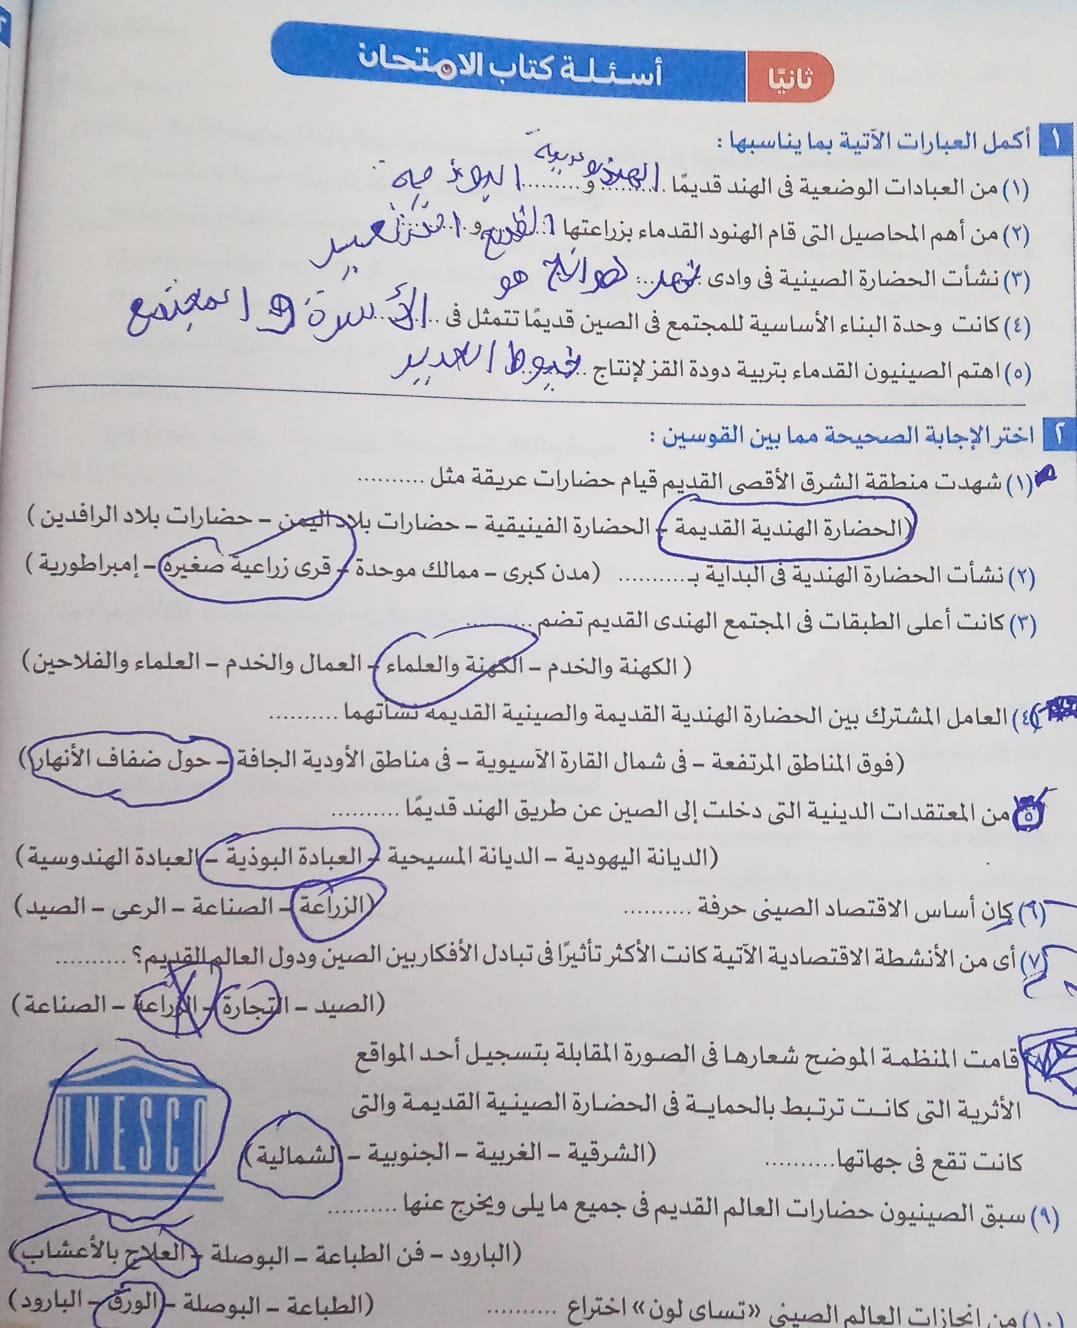 ثانيًا أسئلة كتاب الامتحان
١ أكمل العبارات الآتية بما يناسبها :
(١) من العبادات الوضعية فى الهند قديمًا الهندوسية و البوذية
(٢) من أهم المحاصيل التى قام الهنود القدماء بزراعتها القمح و الشعير
(٣) نشأت الحضارة الصينية فى وادى نهر هوانج هو
(٤) كانت وحدة البناء الأساسية للمجتمع فى الصين قديمًا تتمثل فى الأسرة و المجتمع
(٥) اهتم الصينيون القدماء بتربية دودة القز لإنتاج خيوط الحرير
٢ اختر الإجابة الصحيحة مما بين القوسين :
(١) شهدت منطقة الشرق الأقصى القديم قيام حضارات عريقة مثل ..........
(الحضارة الهندية القديمة – الحضارة الفينيقية – حضارات بلاد اليمن – حضارات بلاد الرافدين)
(٢) نشأت الحضارة الهندية فى البداية بـ .......... (مدن كبرى – ممالك موحدة – قرى زراعية صغيرة – إمبراطورية)
(٣) كانت أعلى الطبقات فى المجتمع الهندى القديم تضم ..........
(الكهنة والخدم – الكهنة والعلماء – العمال والخدم – العلماء والفلاحين)
(٤) العامل المشترك بين الحضارة الهندية القديمة والصينية القديمة نشأتهما ..........
(فوق المناطق المرتفعة – فى شمال القارة الآسيوية – فى مناطق الأودية الجافة – حول ضفاف الأنهار)
(٥) من المعتقدات الدينية التى دخلت إلى الصين عن طريق الهند قديمًا ..........
(الديانة اليهودية – الديانة المسيحية – العبادة البوذية – العبادة الهندوسية)
(٦) كان أساس الاقتصاد الصينى حرفة .......... (الزراعة – الصناعة – الرعى – الصيد)
(٧) أى من الأنشطة الاقتصادية الآتية كانت الأكثر تأثيرًا فى تبادل الأفكار بين الصين ودول العالم القديم؟ ..........
(الصيد – التجارة – الزراعة – الصناعة)
قامت المنظمة الموضح شعارها فى الصورة المقابلة بتسجيل أحد المواقع
الأثرية التى كانت ترتبط بالحماية فى الحضارة الصينية القديمة والتى
كانت تقع فى جهاتها .......... (الشرقية – الغربية – الجنوبية – الشمالية)
UNESCO
(٩) سبق الصينيون حضارات العالم القديم فى جميع ما يلى ويخرج عنها ..........
(البارود – فن الطباعة – البوصلة – العلاج بالأعشاب)
(١٠) من إنجازات العالم الصينى «تساى لون» اختراع .......... (الطباعة – البوصلة – الورق – البارود)